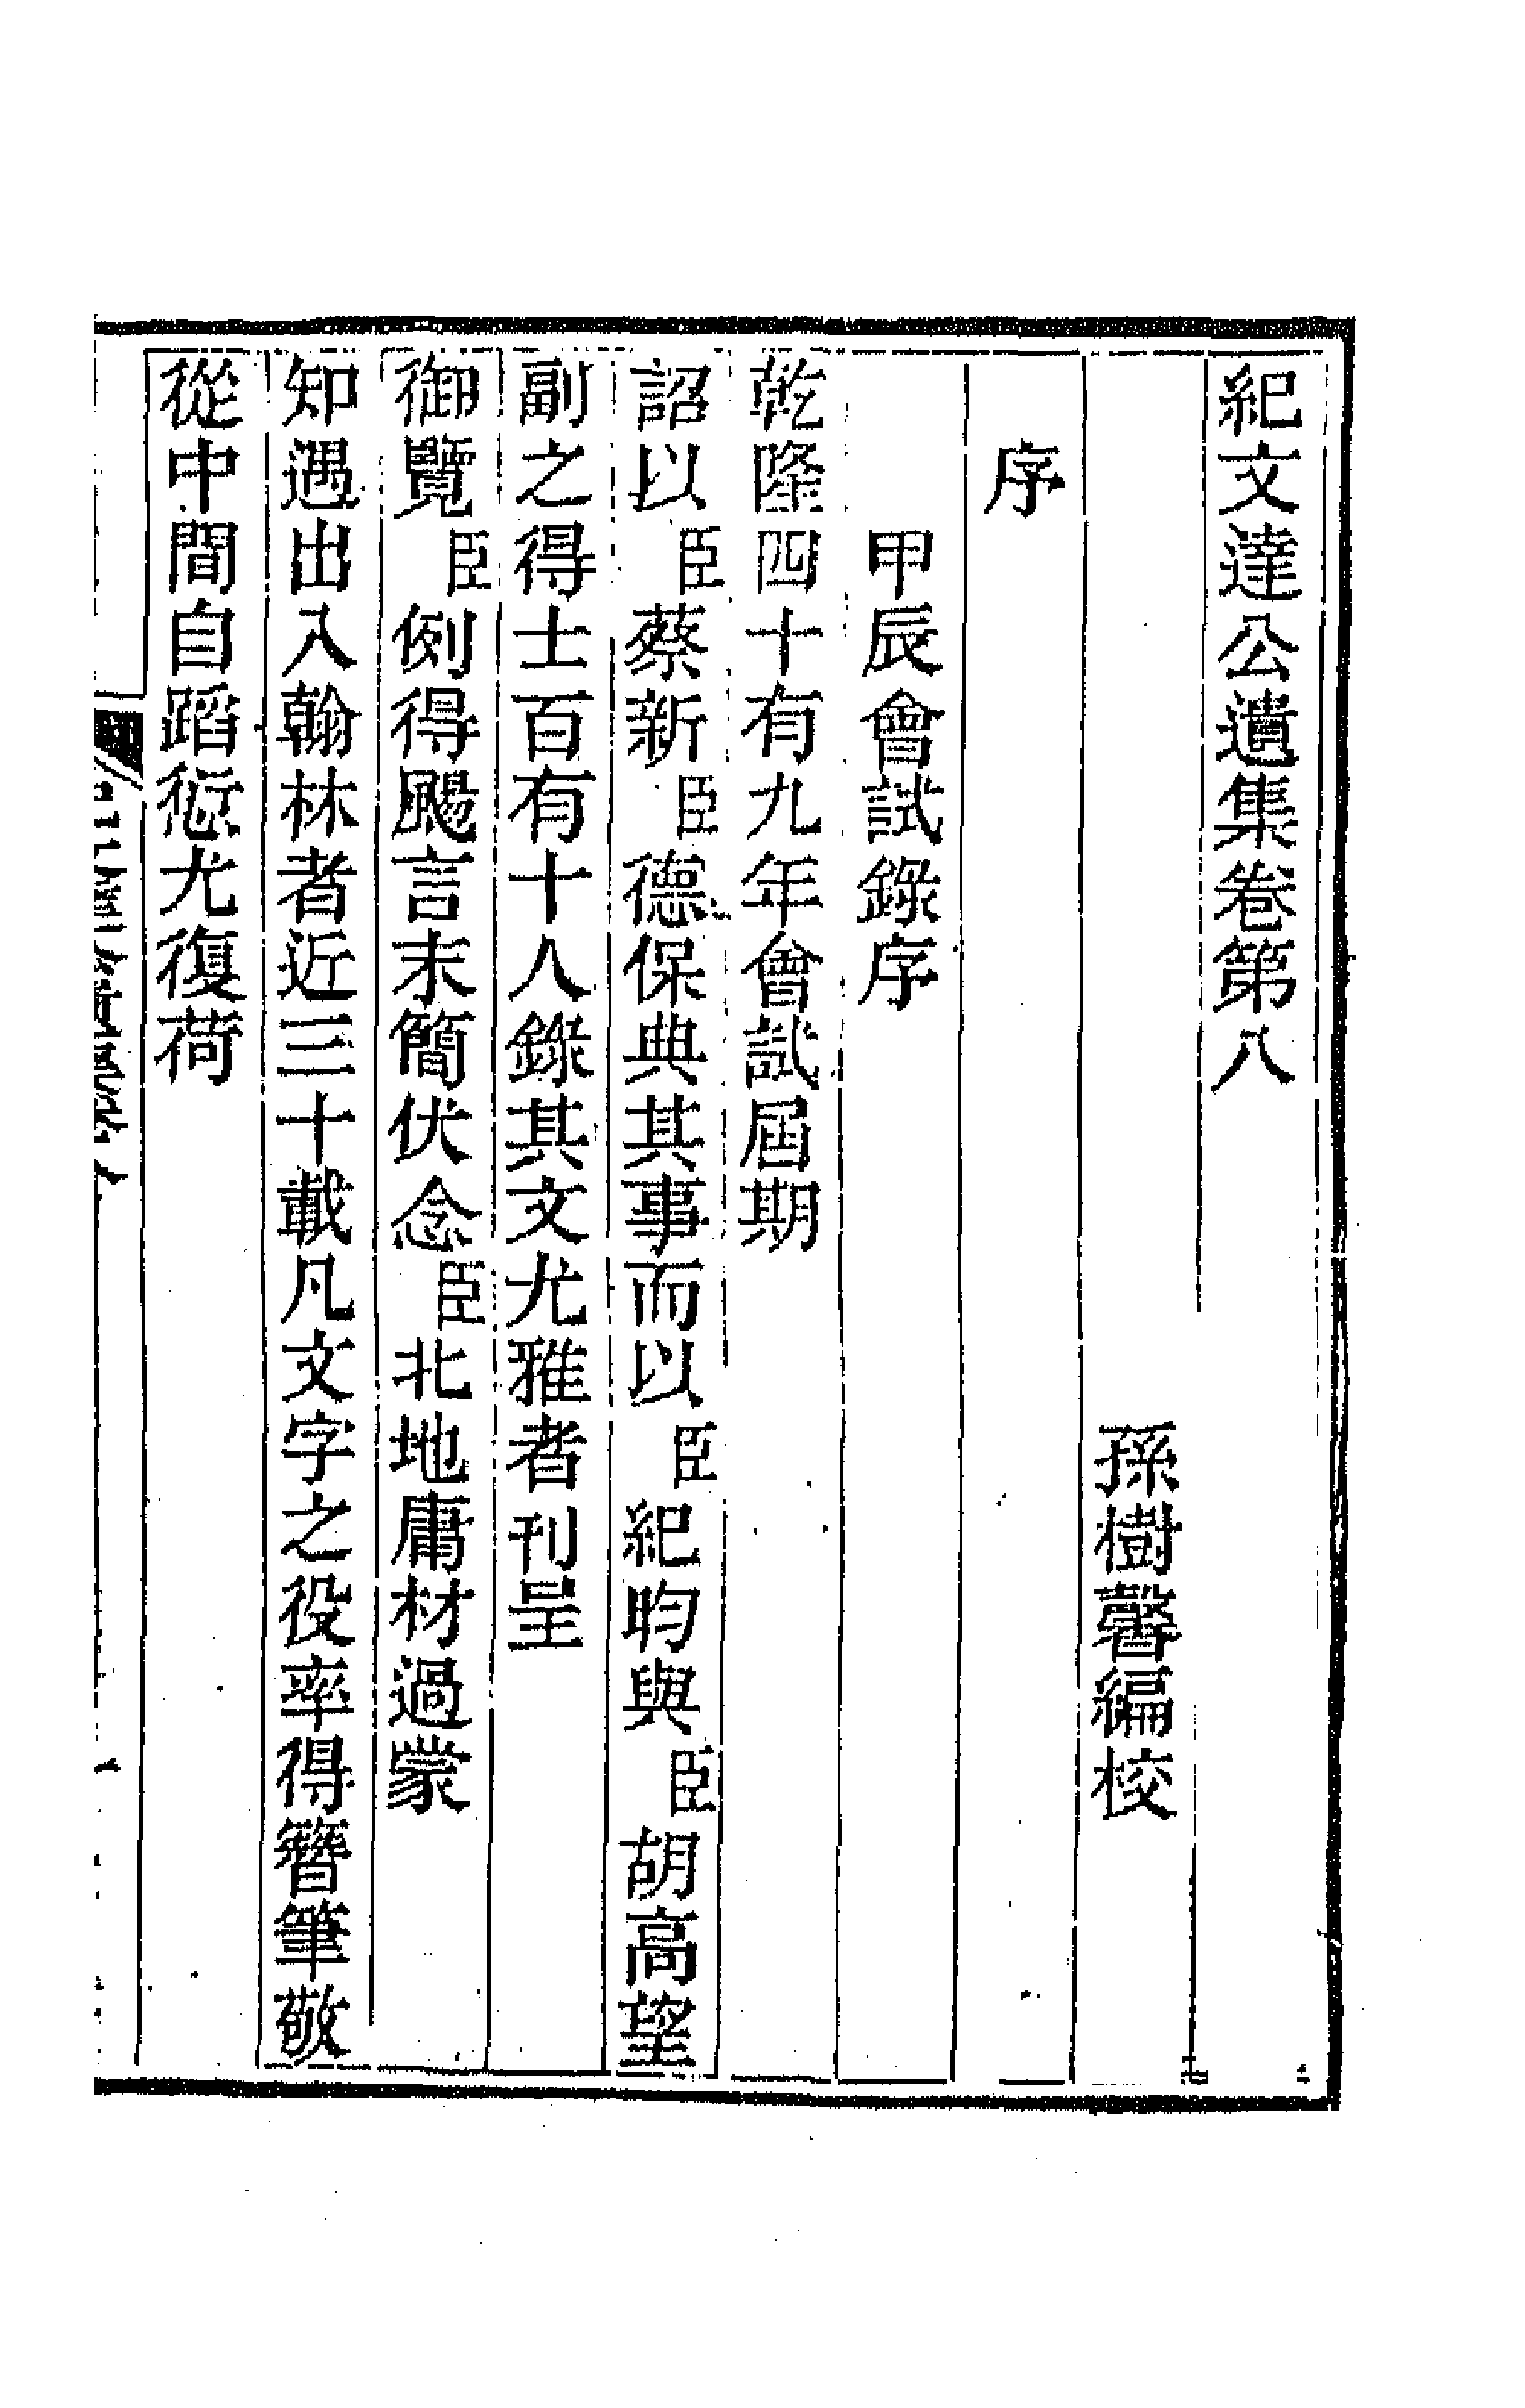 紀文達公遺集卷第八
孫樹馨編校
序
甲辰會試錄序
乾隆四十有九年會試屆期
詔以臣蔡新臣德保典其事而以臣紀昀與臣胡高望
副之得士百有十八錄其文尤雅者刊呈
御覽臣例得颺言末簡伏念臣北地庸材過蒙
知遇出入翰林者近三十載凡文字之役率得簪筆敬
從中間自蹈愆尤復荷